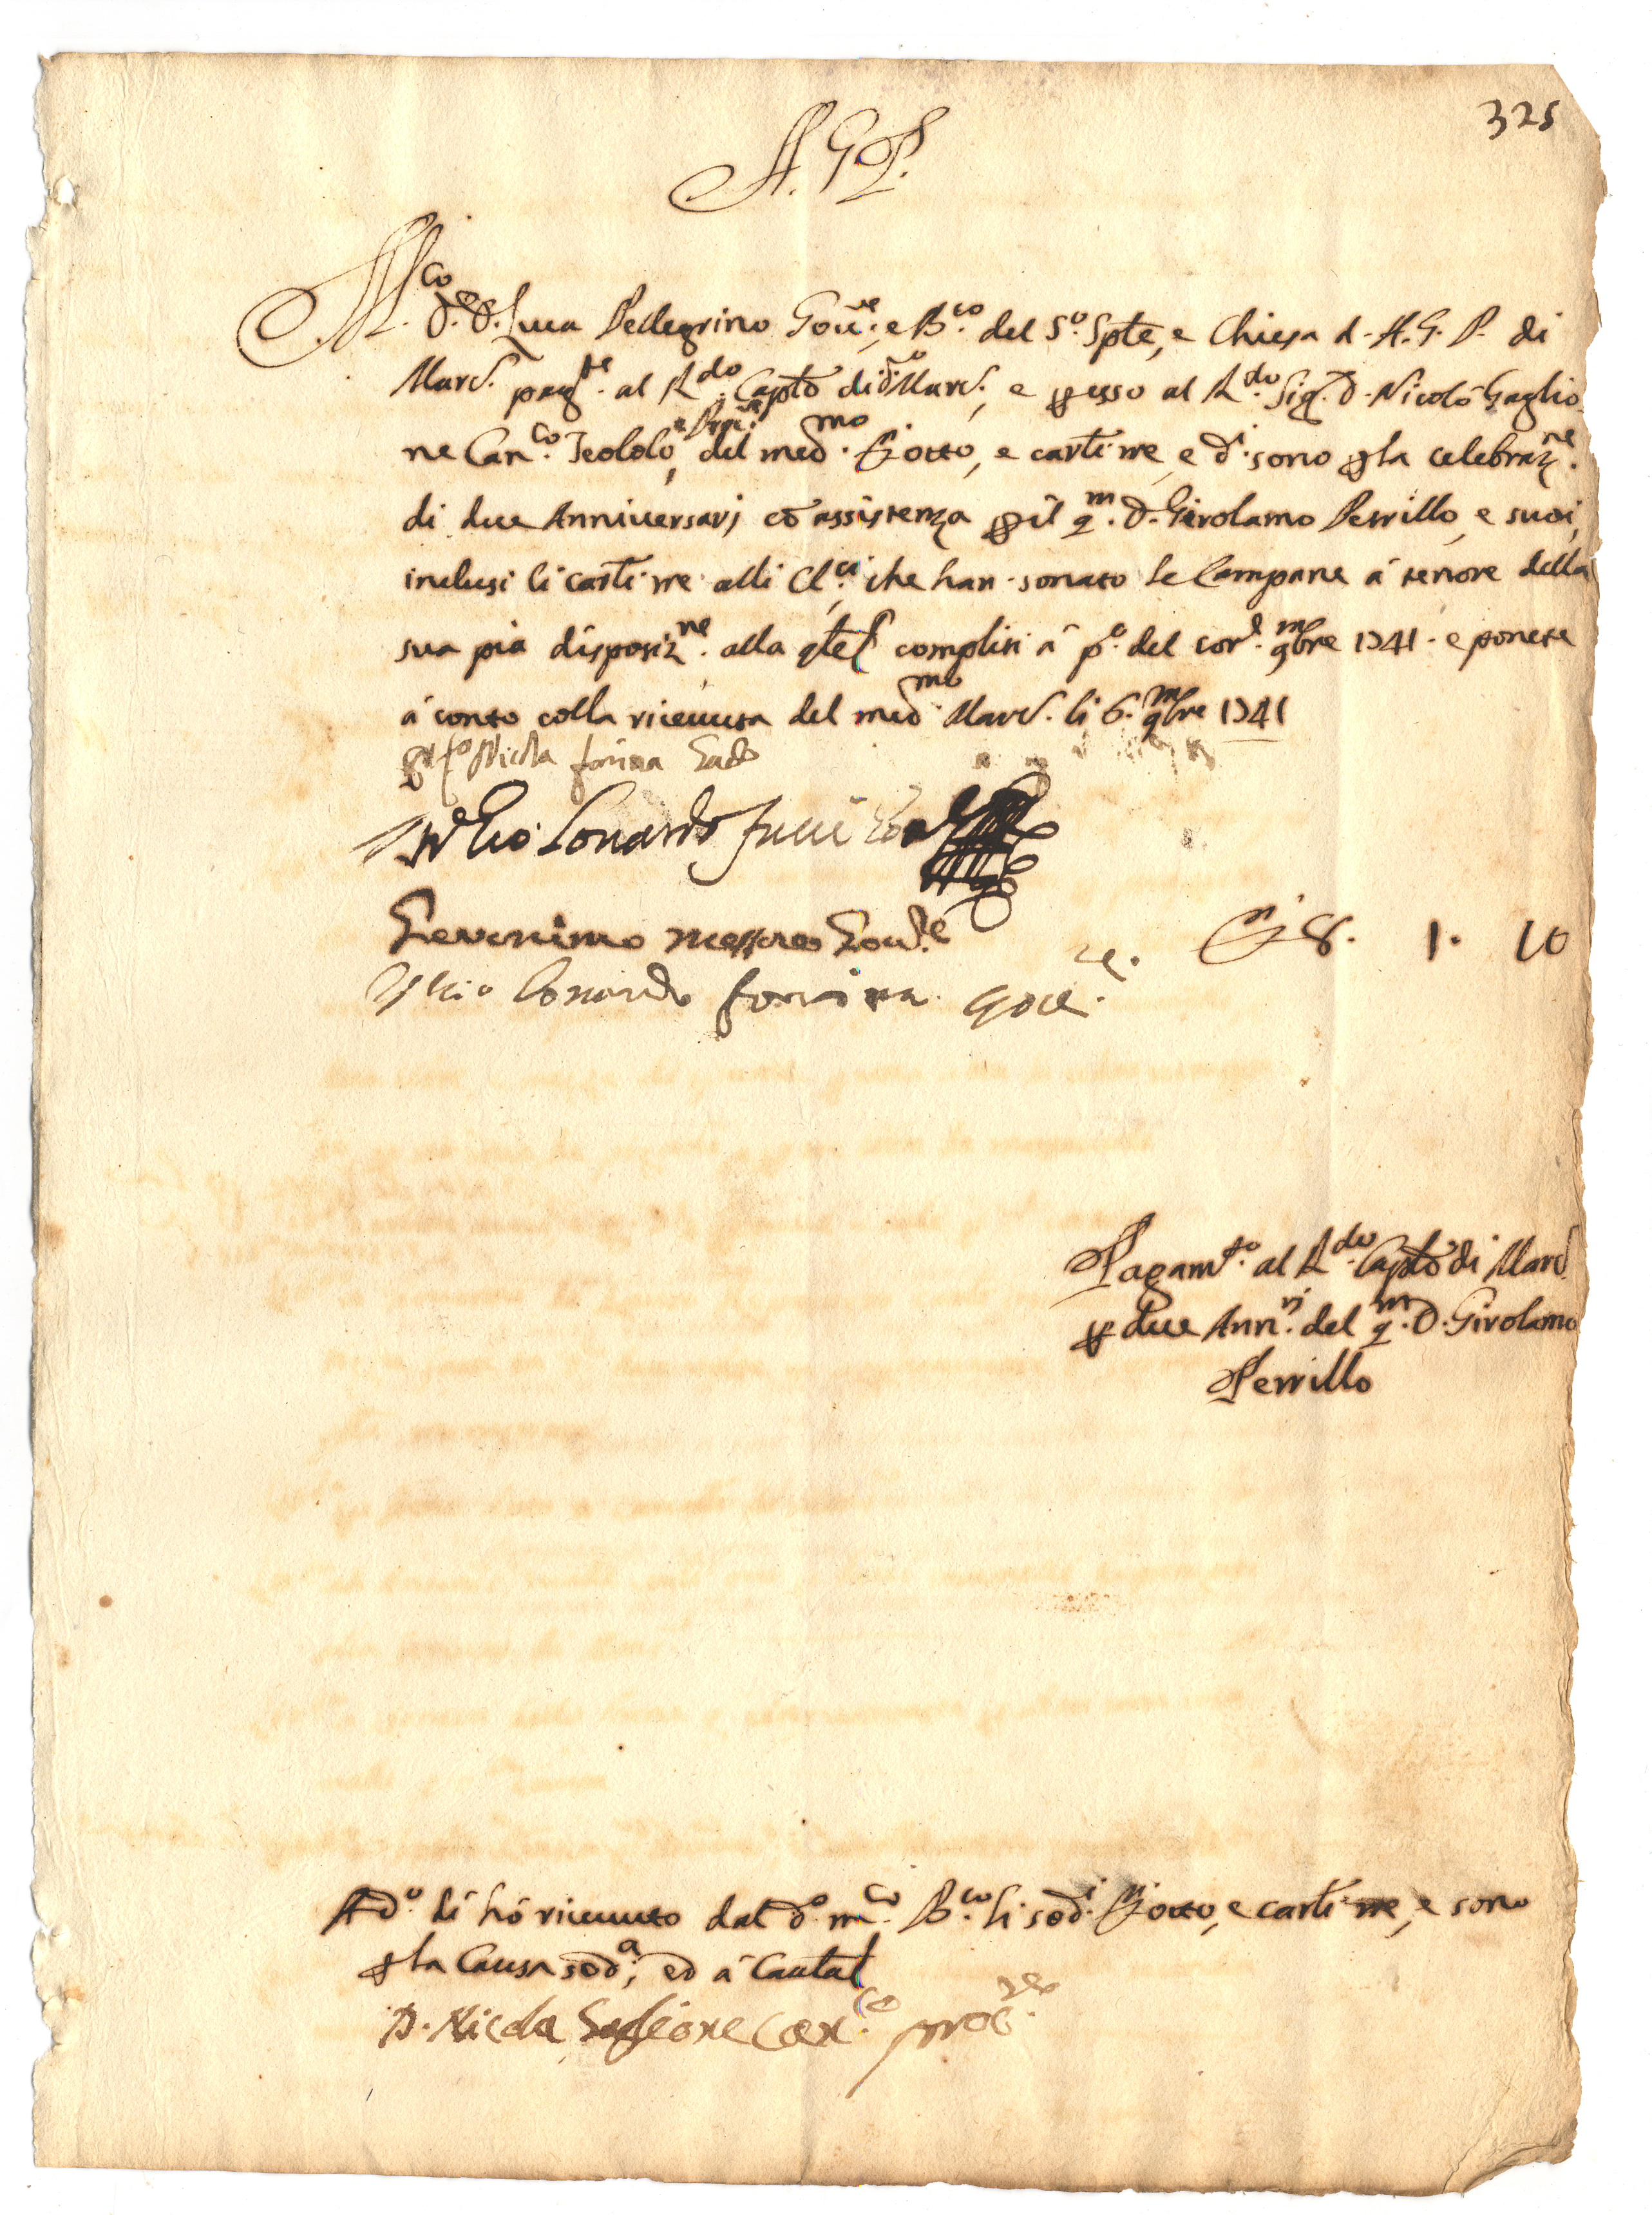 325
A. G. P.
M.co D.r D. Luca Pellegrino Gov.re, e B.co del S.o Spte, e Chiesa d. A. G. P. di
Marc. pag.te al R.do Capto di d.o Marc., e p esso al R.do Sig. D. Nicolò Gaglio
ne Can.co Teololo, e Proc.re del med.mo D.ti otto, e carti tre, e d.i sono p la celebraz.ne
di due Anniversarj co assistenza p il q.m D. Girolamo Perrillo, e suoi,
inclusi li carti tre alli Cl.ci che han sonato le Campane à tenore della
sua pia disposiz.ne alla qle compliti à p.o del cor.e 9mbre 1741. e ponete
à conto colla ricevuta del med.mo Marc. li 6. 9mbre 1741
Nicola farina
Lonardo
Geronimo Gov.re
D.ti 8. 1. 10
Lonardo farina Gove.re
Pagam.to al R.do Capto di Marc.
p due Ann.rj del q.m D. Girolamo
Perrillo
A d.o dì hò ricevuto dal d.o m.co B.co li sod.i D.ti otto, e carti tre, e sono
p la Causa sod.a, ed à Cautal
D. Nicola Gaglione Can.co proc.re